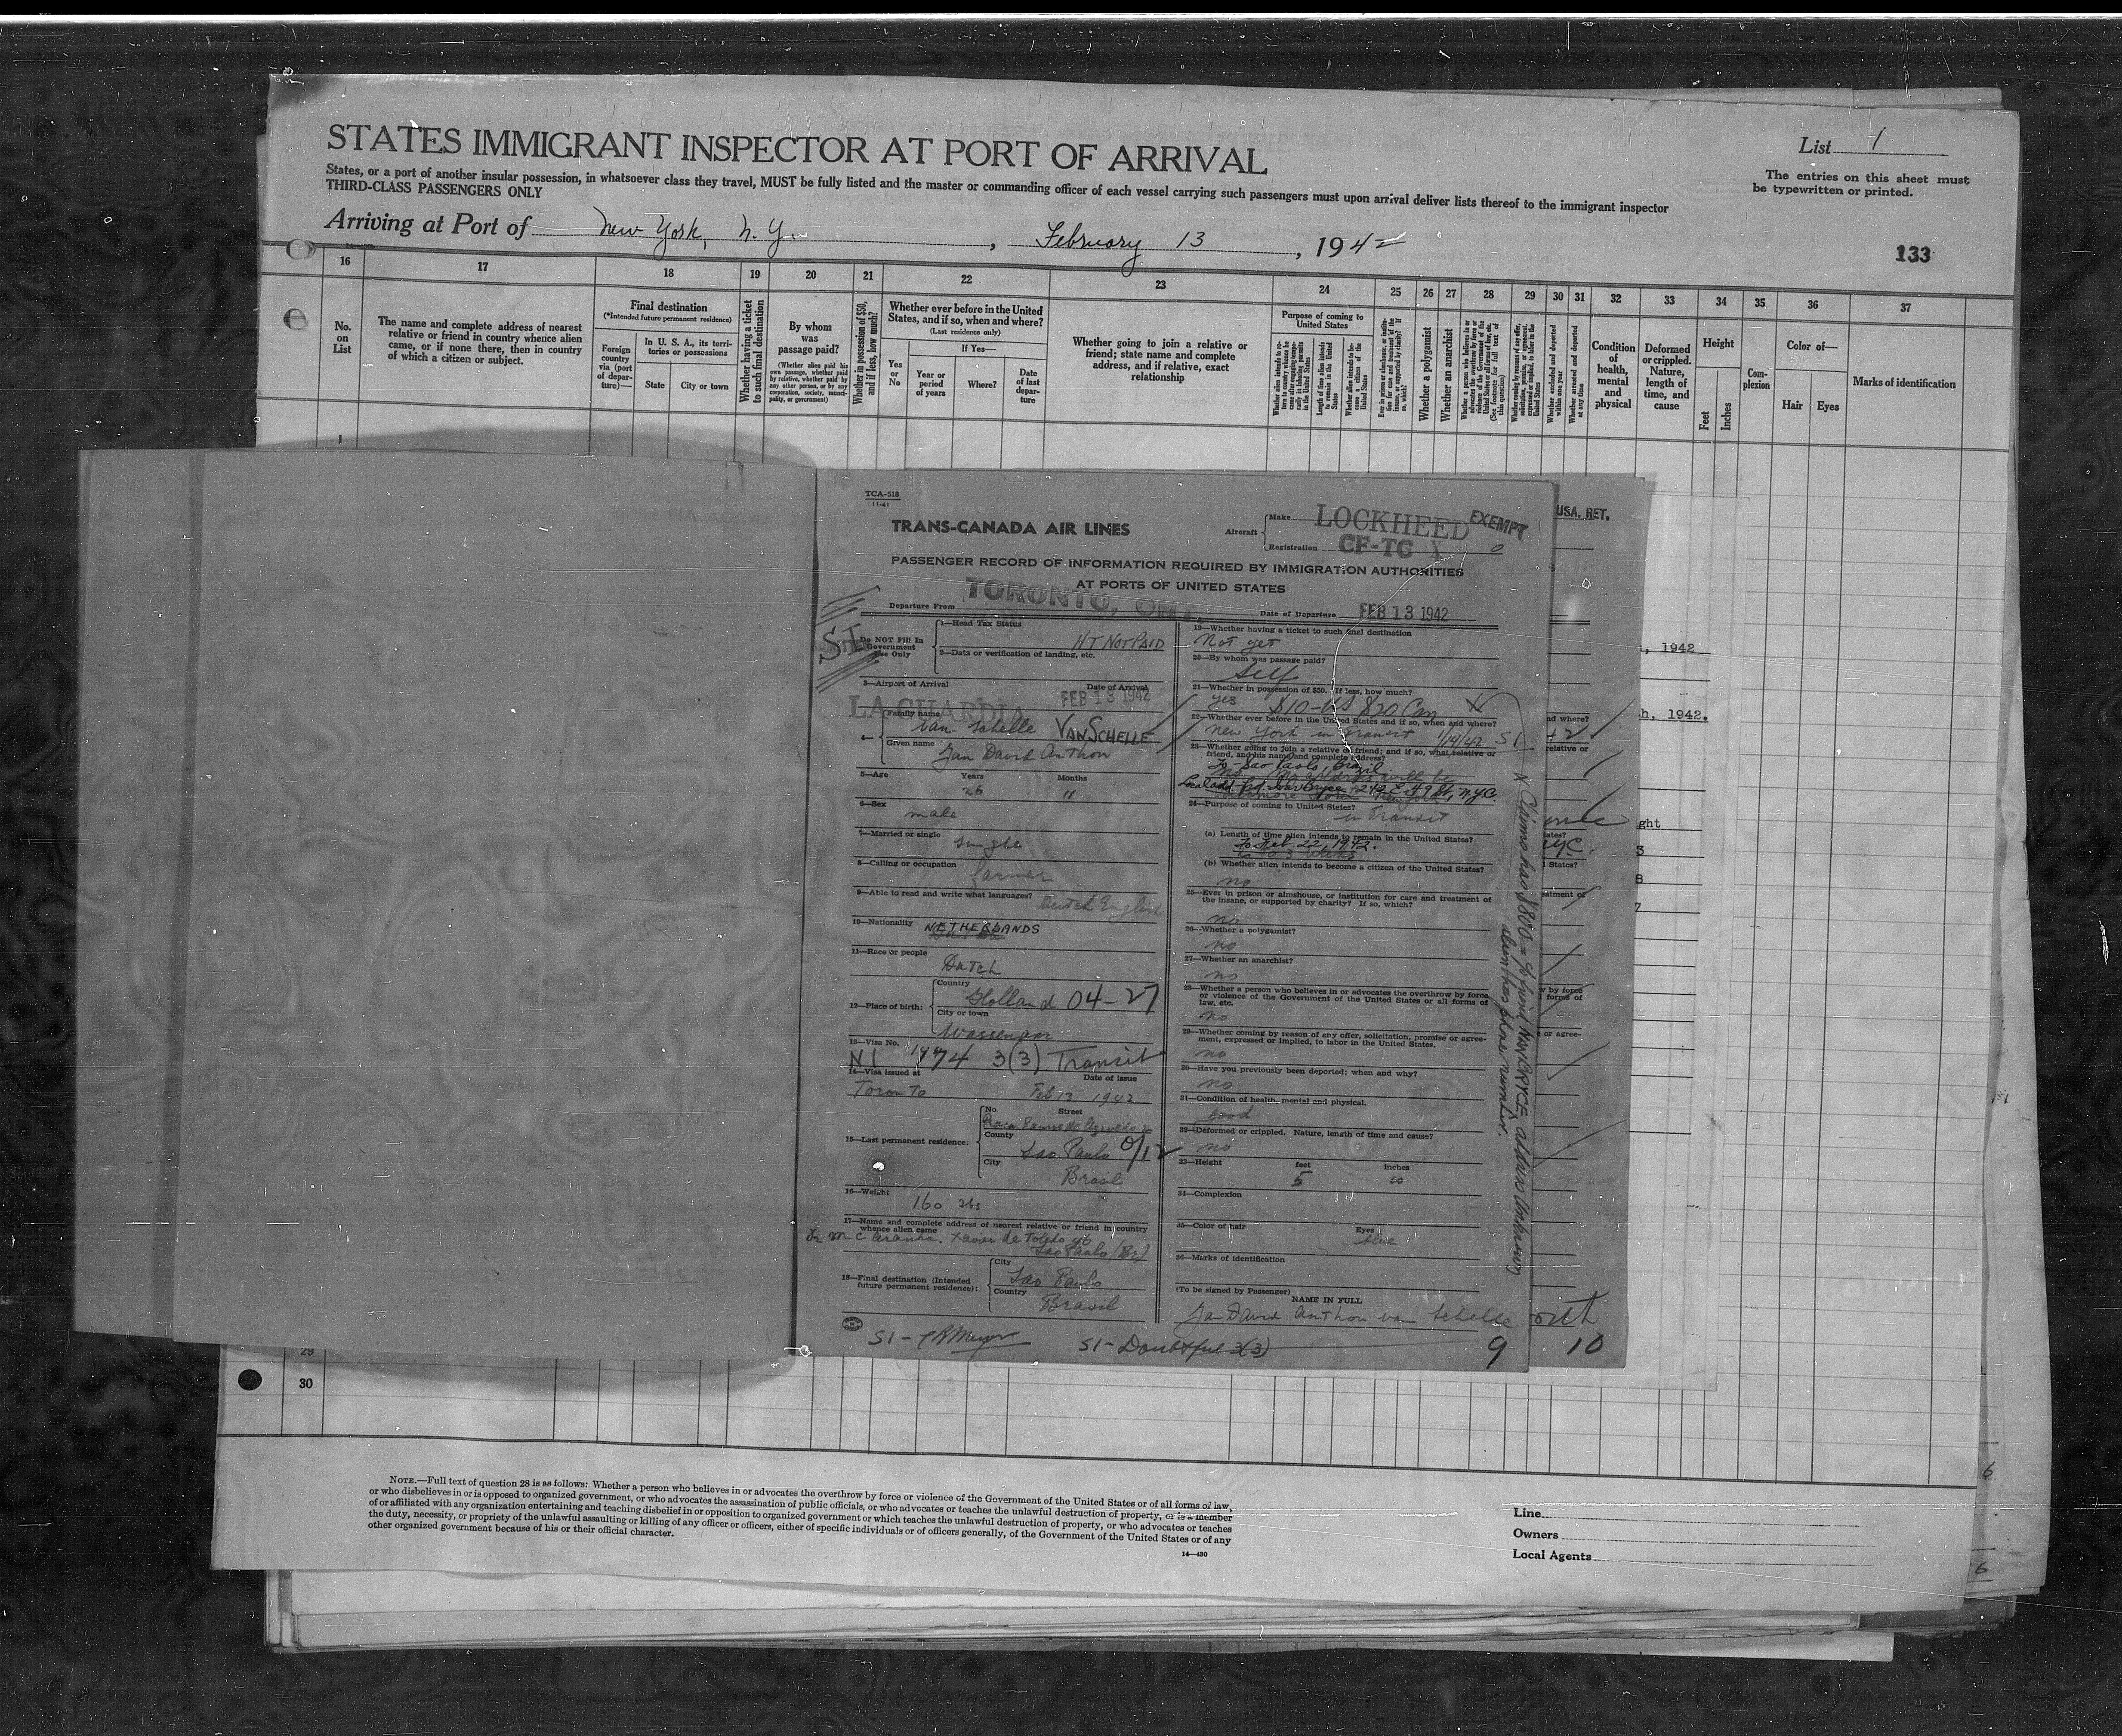 STATES IMMIGRANT INSPECTOR AT PORT OF ARRIVAL
List 1
States, or a port of another insular possession, in whatsoever class they travel, MUST be fully listed and the master or commanding officer of each vessel carrying such passengers must upon arrival deliver lists thereof to the immigrant inspector
THIRD-CLASS PASSENGERS ONLY
The entries on this sheet must
be typewritten or printed.
Arriving at Port of New York, N.Y. , February 13 , 1942
133
16 17 18 19 20 21 22 23 24 25 26 27 28 29 30 31 32 33 34 35 36 37
No.
on
List
The name and complete address of nearest
relative or friend in country whence alien
came, or if none there, then in country
of which a citizen or subject.
Final destination
(*Intended future permanent residence)
Foreign
country
via (port
of depar-
ture)—
In U. S. A., its terri-
tories or possessions
State
City or town
Whether having a ticket
to such final destination
By whom
was
passage paid?
(Whether alien paid his
own passage, whether paid
by relative, whether paid by
any other person, or by any
corporation, society, munici-
pality, or government)
Whether in possession of $50,
and if less, how much?
Whether ever before in the United
States, and if so, when and where?
(Last residence only)
Yes
or
No
If Yes—
Year or
period
of years
Where?
Date
of last
depar-
ture
Whether going to join a relative or
friend; state name and complete
address, and if relative, exact
relationship
Purpose of coming to
United States
Length of time alien intends
to remain in the United
States
Whether a polygamist
Whether an anarchist
Condition
of
health,
mental
and
physical
Deformed
or crippled.
Nature,
length of
time, and
cause
Height
Feet
Inches
Com-
plexion
Color of—
Hair
Eyes
Marks of identification
1
TCA-518
11-41
TRANS-CANADA AIR LINES
Aircraft
Make LOCKHEED
EXEMPT
Registration CF-TC X
PASSENGER RECORD OF INFORMATION REQUIRED BY IMMIGRATION AUTHORITIES
AT PORTS OF UNITED STATES
Departure From TORONTO, ONT.
Date of Departure FEB 13 1942
SI
Do NOT Fill In
Government
Use Only
1—Head Tax Status
HT NOT PAID
2—Data or verification of landing, etc.
3—Airport of Arrival
LA GUARDIA
Date of Arrival
FEB 13 1942
4—
Family name
van Schelle VANSCHELLE
Given name
Jan David Anthon
5—Age
Years
26
Months
11
6—Sex
male
7—Married or single
single
8—Calling or occupation
farmer
9—Able to read and write what languages? Dutch English
10—Nationality NETHERLANDS
11—Race or people
Dutch
12—Place of birth:
Country
Holland 04-27
City or town
Wassenaar
13—Visa No.
N I 1974 3(3) Transit
14—Visa issued at
Toronto
Date of issue
Feb 13 1942
15—Last permanent residence:
No.
Street
County
Sao Paulo 0/12
City
Brasil
16—Weight
160 lbs
17—Name and complete address of nearest relative or friend in country
whence alien came
Xavier de Toledo
Sao Paulo (Br)
18—Final destination (Intended
future permanent residence):
City
Sao Paulo
Country
Brasil
19—Whether having a ticket to such final destination
Not yet
20—By whom was passage paid?
Self
21—Whether in possession of $50. If less, how much?
yes $10-US $20 Can X
22—Whether ever before in the United States and if so, when and where?
New York in transit 1/14/42 SI
23—Whether going to join a relative or friend; and if so, what relative or
friend, and his name and complete address?
To - Sao Paolo, Brazil
N.Y.C.
24—Purpose of coming to United States?
in Transit
(a) Length of time alien intends to remain in the United States?
To Feb 22, 1942.
(b) Whether alien intends to become a citizen of the United States?
no
25—Ever in prison or almshouse, or institution for care and treatment of
the insane, or supported by charity? If so, which?
no
26—Whether a polygamist?
no
27—Whether an anarchist?
no
28—Whether a person who believes in or advocates the overthrow by force
or violence of the Government of the United States or all forms of
law, etc.
no
29—Whether coming by reason of any offer, solicitation, promise or agree-
ment, expressed or implied, to labor in the United States.
no
30—Have you previously been deported; when and why?
no
31—Condition of health, mental and physical.
good
32—Deformed or crippled. Nature, length of time and cause?
no
33—Height
feet
5
inches
10
34—Complexion
35—Color of hair
Eyes
blue
36—Marks of identification
(To be signed by Passenger)
NAME IN FULL
Jan David Anthon van Schelle
SI - Doubtful 3(3)
9
10
X Claims has $800 = % friend address unknown
alien has phone number.
USA, RET.
, 1942
h, 1942.
ght
29
30
NOTE.—Full text of question 28 is as follows: Whether a person who believes in or advocates the overthrow by force or violence of the Government of the United States or of all forms of law,
or who disbelieves in or is opposed to organized government, or who advocates the assassination of public officials, or who advocates or teaches the unlawful destruction of property, or is a member
of or affiliated with any organization entertaining and teaching disbelief in or opposition to organized government or which teaches the unlawful destruction of property, or who advocates or teaches
the duty, necessity, or propriety of the unlawful assaulting or killing of any officer or officers, either of specific individuals or of officers generally, of the Government of the United States or of any
other organized government because of his or their official character.
14—430
Line
Owners
Local Agents